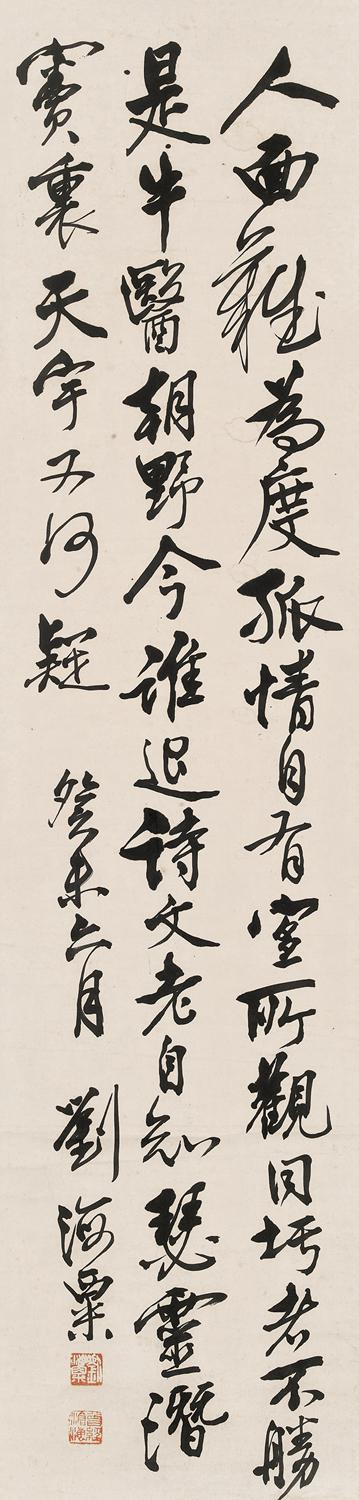 人面難為度孤情自有室所觀同垮者不勝
是牛醫朝野今誰退詩文老自知瑟靈潛
寶裏天宇又何疑
癸未六月
劉海粟